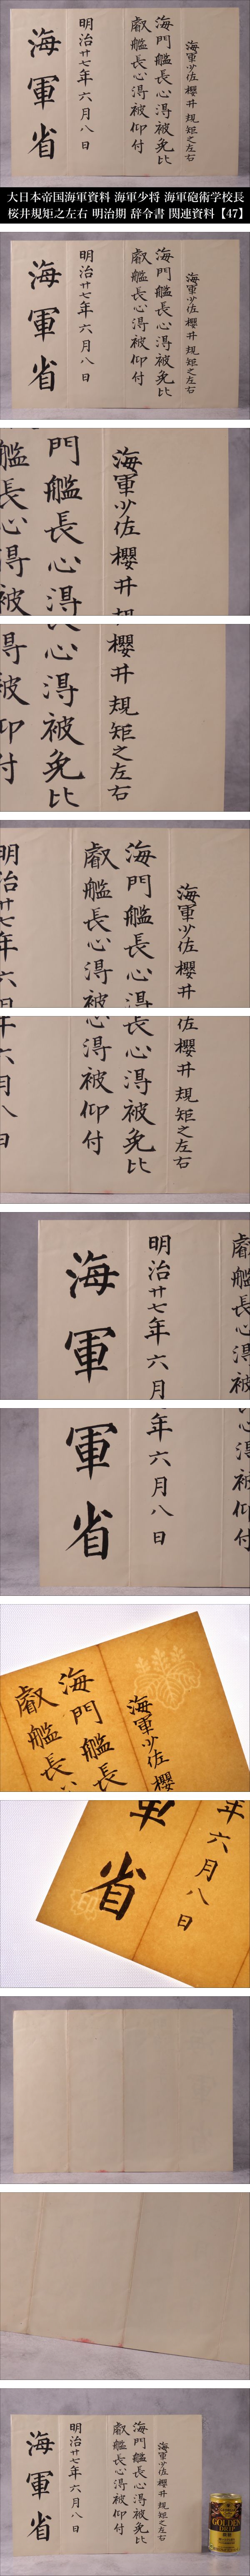 海軍少佐 櫻井規矩之左右
海門艦長心得被免比
叡艦長心得被仰付
明治廿七年六月八日
海軍省
大日本帝国海軍資料 海軍少将 海軍砲術学校長
桜井規矩之左右 明治期 辞令書 関連資料【47】
海軍少佐 櫻井規矩之左右
海門艦長心得被免比
叡艦長心得被仰付
明治廿七年六月八日
海軍省
海軍少佐 櫻井
門艦長心得
艦長心得被
櫻井規矩之左右
心得被免比
得被仰付
海軍少佐 櫻井
海門艦長心得
叡艦長心得被
明治廿七年六
佐 櫻井規矩之左右
長心得被免比
心得被仰付
年六月八日
叡艦長心得被
明治廿七年六月
海軍
長心得被仰付
年六月八日
軍省
海軍少佐 櫻
海門艦長
叡艦長心
年六月八日
軍省
海軍少佐 櫻井規矩之左右
海門艦長心得被免比
叡艦長心得被仰付
明治廿七年六月八日
海軍省
GOLDEN
DRIP